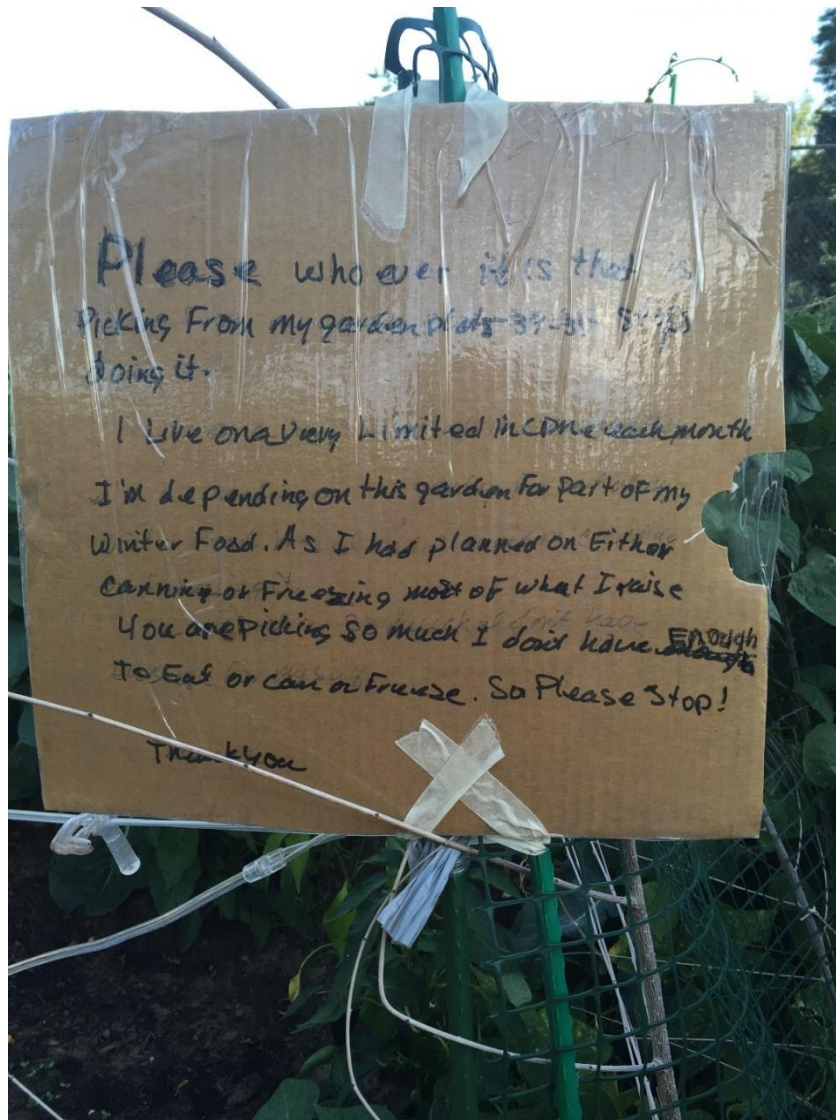 Please who ever it is that is
Picking From my garden plots 34-35 Stop
doing it.
I Live on a Very Limited inCOMe each month
I'm depending on this garden For part of my
Winter Food. As I had planned on Either
Canning or Freezing most of what I raise
You are Picking so much I don't have Enough
To Eat or can or Freeze. So Please Stop!
Thank you